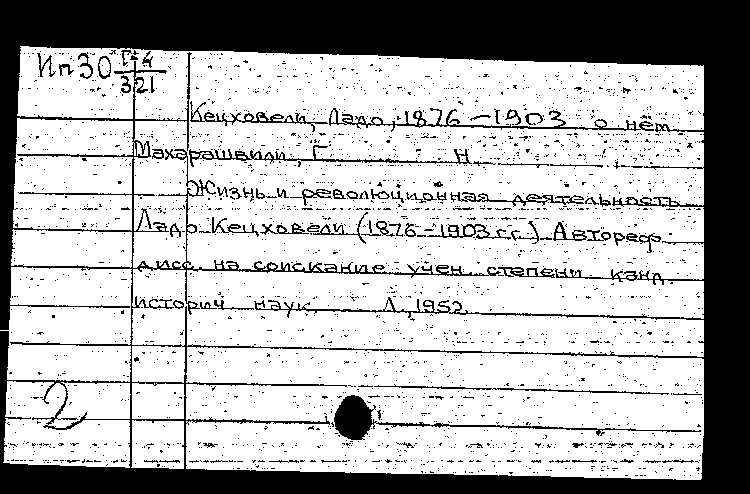 Ип30 Г-4
321
Кецховели, Ладо, 1876-1903 о нём
Махарашвили, Г. Н.
Жизнь и революционная деятельность
Ладо Кецховели (1876-1903 гг.) Автореф.
дисс. на соискание учен. степени канд.
историч наук. Л., 1952
2